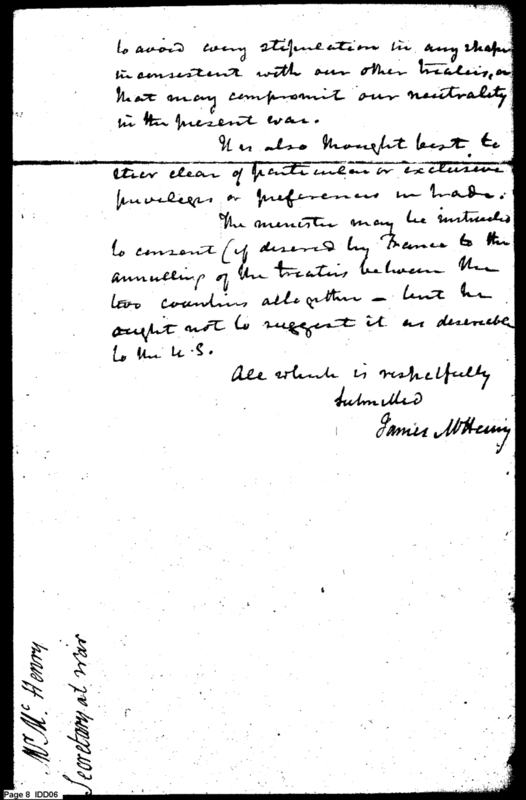 to avoid every stipulation in any shape
inconsistent with our other treaties, or
that may compromit our neutrality
in the present war.
It is also thought best to
steer clear of particular or exclusive
privileges or preferences in trade.
The minister may be instructed
to consent (if desired by France to the
annulling of the treaties between the
two countries altogether – but he
ought not to suggest it as desireable
to the U.S.
All which is respectfully
submitted
James McHenry
Mr. Mc Henry
Secretary at war
Page 8 IDD06